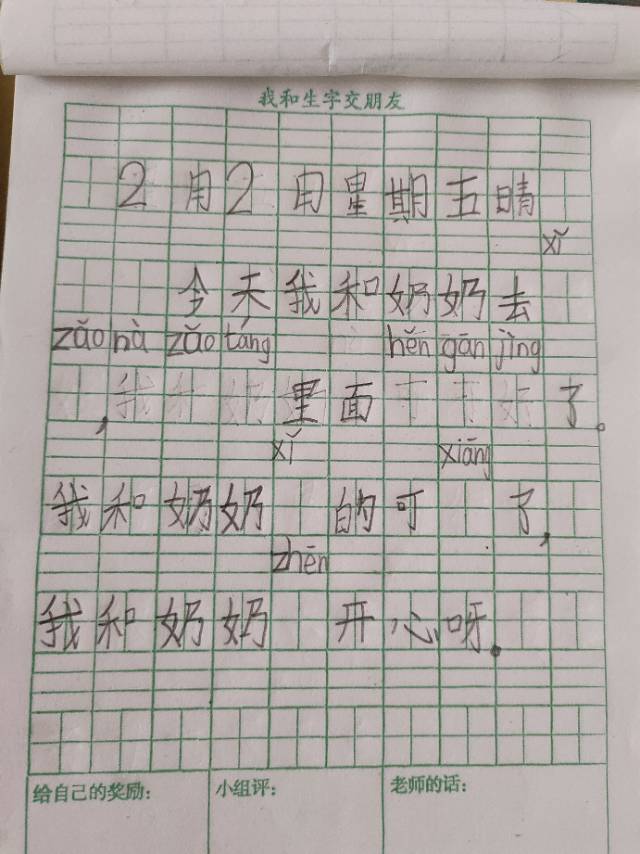 我和生字交朋友
2月2日星期五晴
xǐ
今天我和奶奶去
zǎo nà zǎo táng hěn gān jìng
，里面了。
xǐ xiāng
我和奶奶的可了，
zhēn
我和奶奶开心呀。
给自己的奖励： 小组评： 老师的话：